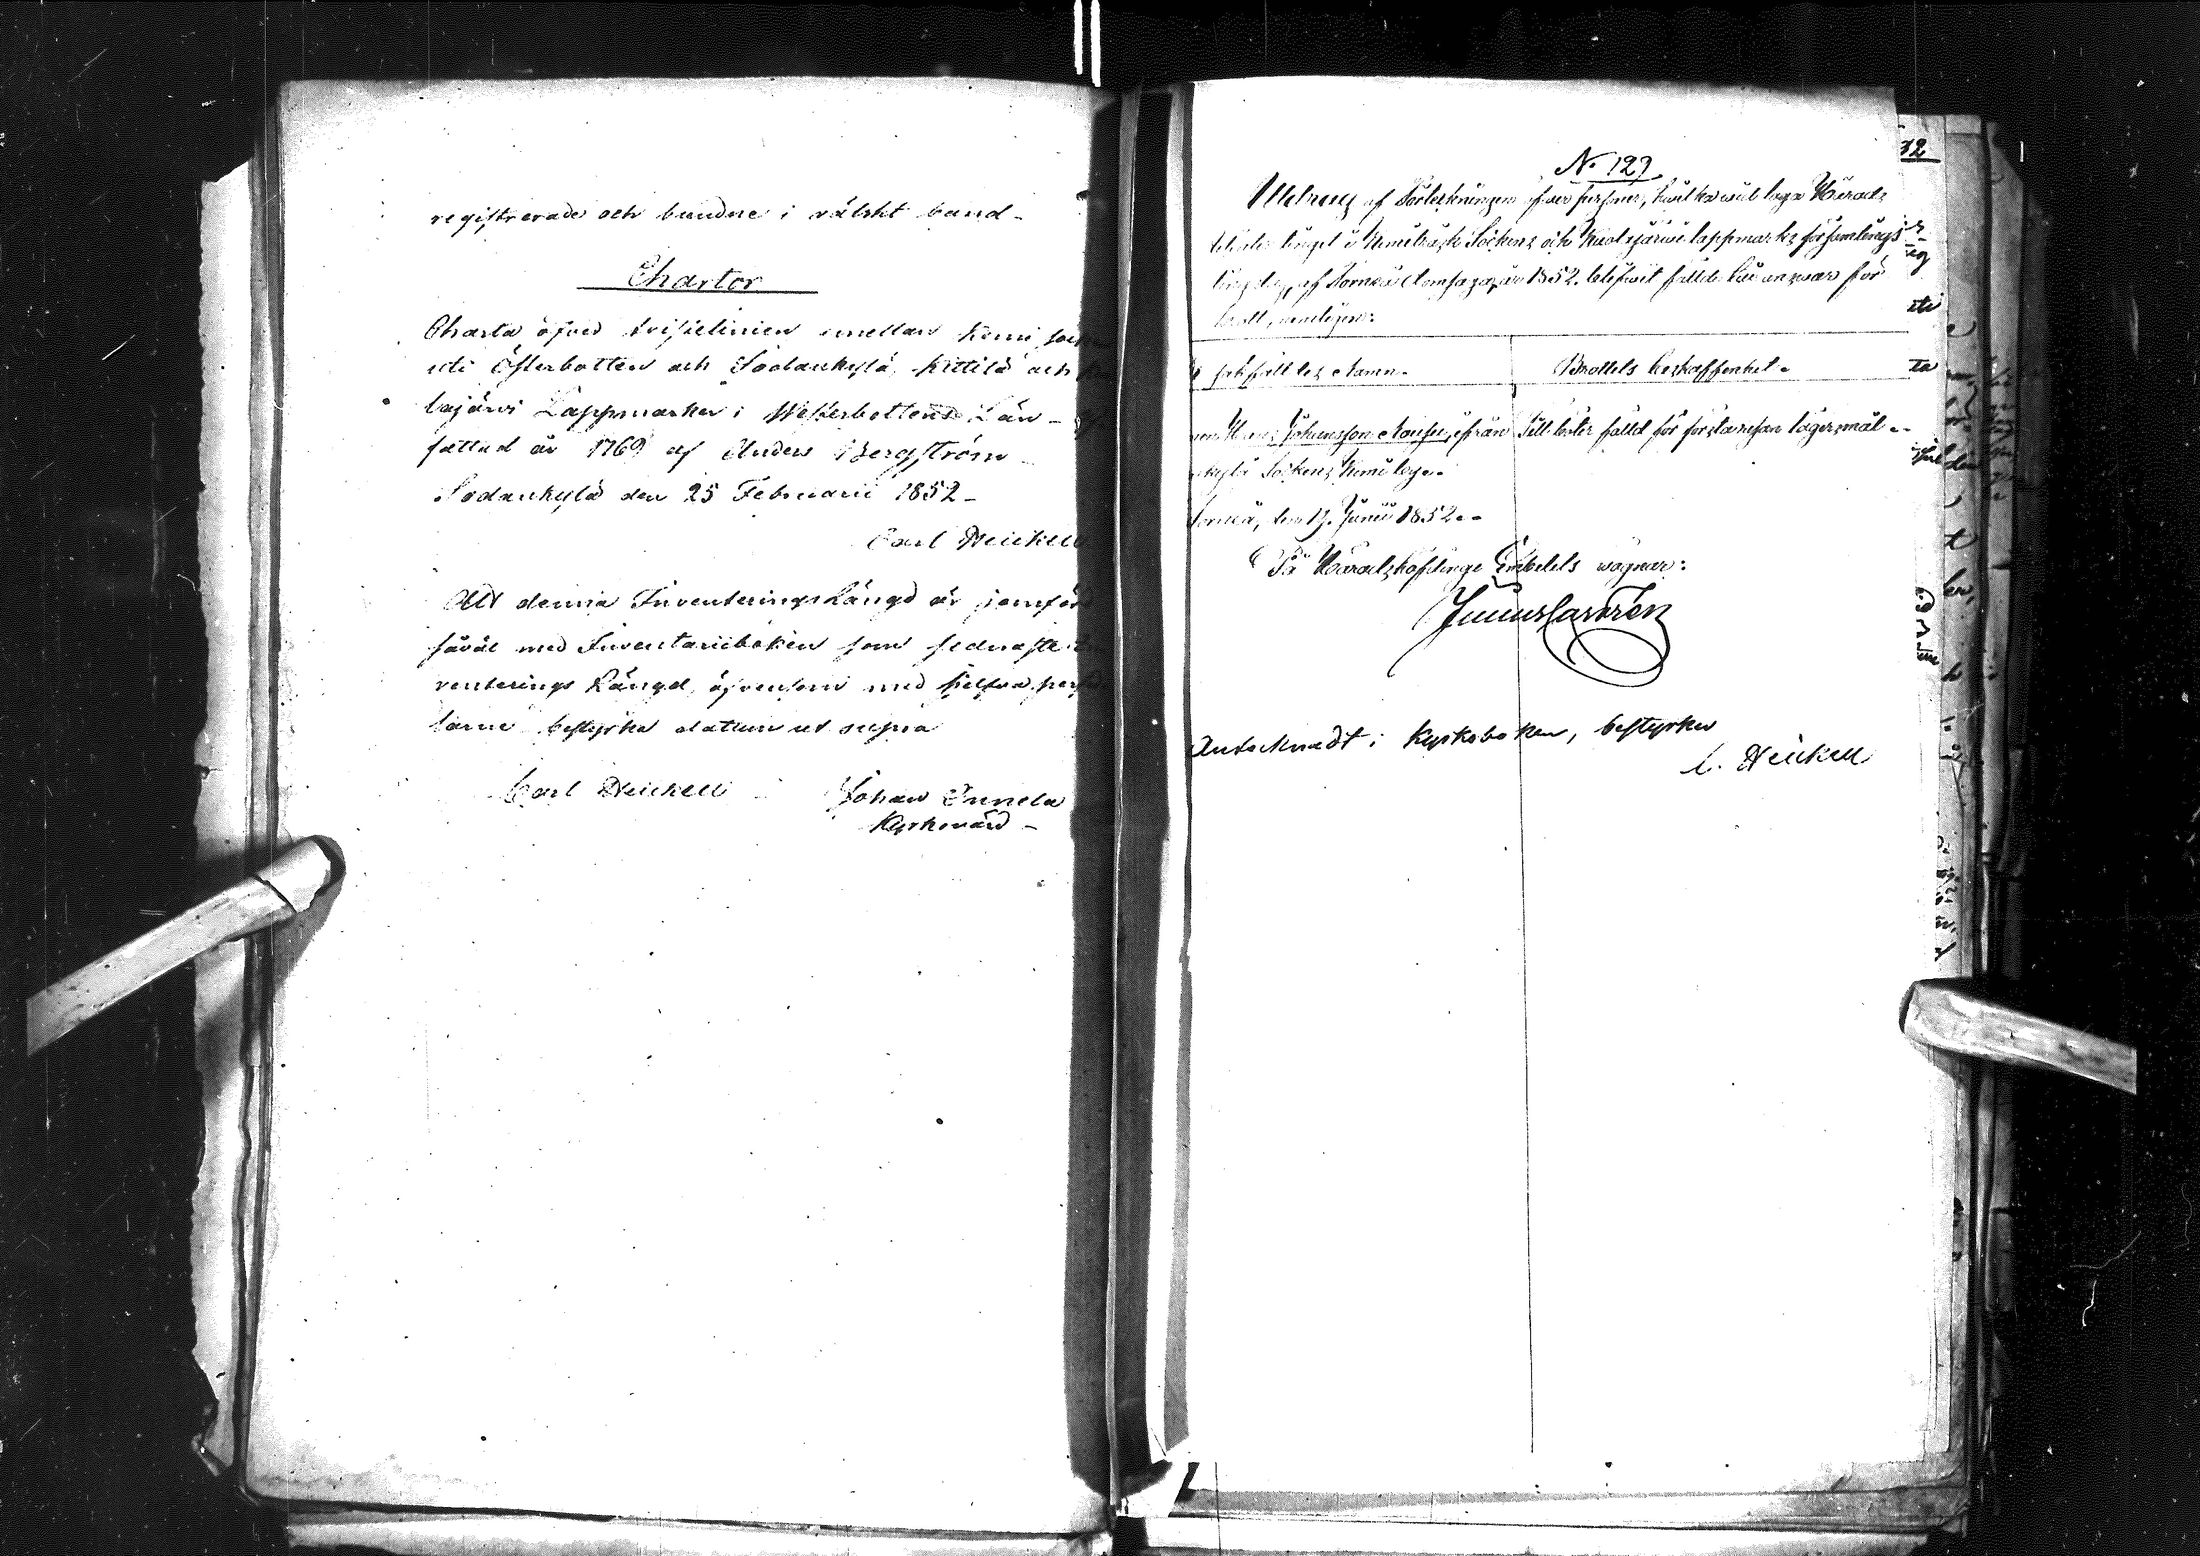 registrerade och bundne i välskt band -
Chartor
Charta öfver skiljelinien emellan Kemi sock
uti Österbotten och Sodankylä, Kittilä och
bajärvi Lappmarker i Westerbottens Län -
fattad år 1769 af Anders Bergström
Sodankylä den 25 Februarii 1852 -
Carl Heickell
Att denna Inventerings Längd är jemförd
såväl med Inventariiboken som sednaste In
venterings Längd, äfvensom med sjelfva perse
larne bestyrka datum ut supra
Carl Heickell
Johan Innela
Kyrkovärd -
No 129
Utdrag af Förteckningen öfver personer, hvilka vid laga Härads
tinget i Kemiträsk Sockens och Kuolajärvi lappmarks församlings
tingslag, af Torneå Domsaga, år 1852, blifvit fällde till answar för
brott, nemligen:
sakfälldes Namn.
Brottets beskaffenhet.
Hans Johansson Nousu, ifrån
Till böter fälld för första resan lägersmål.
Sockens Kemi by.
Torneå, den 17 Junii 1852.
På Häradshöfdinge Embetets vägnar:
Junius Castrén
Antecknadt i Kyrkoboken, bestyrker
C. Heickell